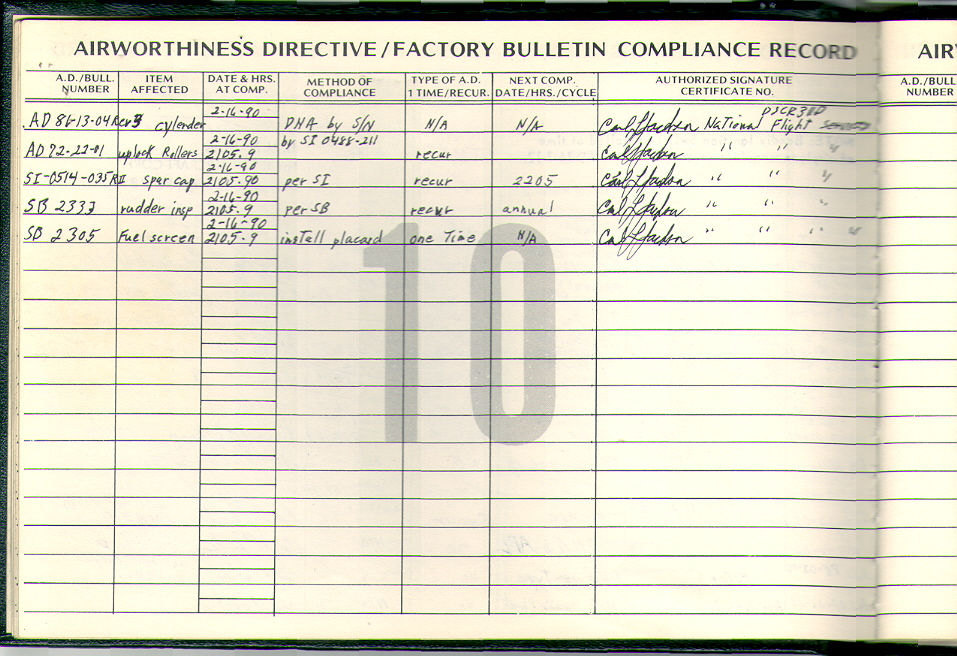 AIRWORTHINESS DIRECTIVE/FACTORY BULLETIN COMPLIANCE RECORD
A.D./BULL. NUMBER ITEM AFFECTED DATE & HRS. AT COMP. METHOD OF COMPLIANCE TYPE OF A.D. 1 TIME/RECUR. NEXT COMP. DATE/HRS./CYCLE AUTHORIZED SIGNATURE CERTIFICATE NO.
AD 86-13-04 Rev 3 cylender 2-16-90 DNA by S/N N/A N/A National Flight Services
AD 72-22-01 uplock Rollers 2-16-90 2105.9 by SI 0488-211 recur " " "
SI-0514-035 RII spar cap 2-16-90 2105.90 per SI recur 2205 " " "
SB 2337 rudder insp 2-16-90 2105.9 per SB recur annual " " "
SB 2305 Fuel screen 2-16-90 2105.9 install placard one Time N/A " " "
10
AIRW
A.D./BULL NUMBER